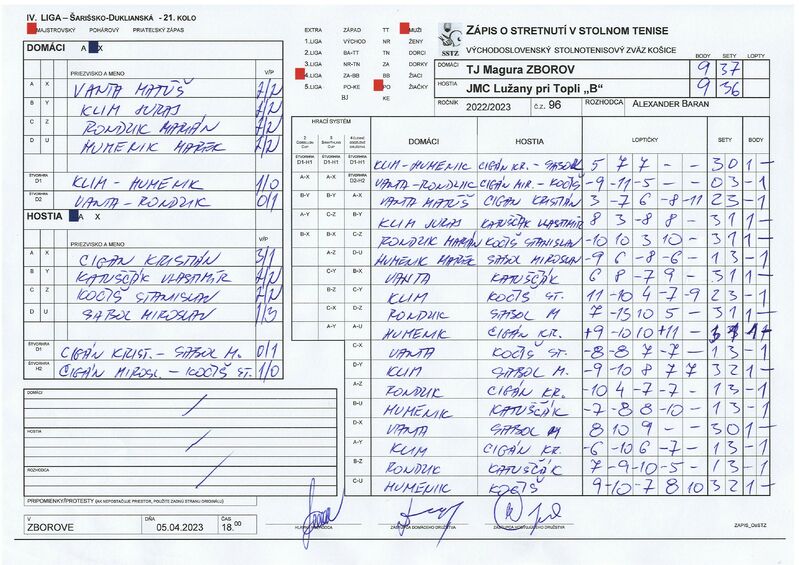 IV. LIGA – ŠARIŠSKO-DUKLIANSKÁ - 21. KOLO
MAJSTROVSKÝ POHÁROVÝ PRIATEĽSKÝ ZÁPAS
DOMÁCI A X
PRIEZVISKO A MENO V/P
A X VANTA MATÚŠ 2/2
B Y KLIM JURAJ 2/2
C Z RONDZIK MARIÁN 2/2
D U HUMENIK MAREK 2/2
ŠTVORHRA D1 KLIM - HUMENIK 1/0
ŠTVORHRA D2 VANTA - RONDZIK 0/1
HOSTIA A X
PRIEZVISKO A MENO V/P
A X CIGÁN KRISTIÁN 3/1
B Y KATUŠČÁK VLASTIMÍR 2/2
C Z KOČIŠ STANISLAV 2/2
D U SABOL MIROSLAV 1/3
ŠTVORHRA CIGÁN KRIST. - SABOL M. 0/1
ŠTVORHRA H2 CIGÁN MIROSL. - KOČIŠ ST. 1/0
DOMÁCI
HOSTIA
ROZHODCA
PRIPOMIENKY/PROTESTY (AK NEPOSTAČUJE PRIESTOR, POUŽITE ZADNÚ STRANU ORIGINÁLU)
V ZBOROVE DŇA 05.04.2023 ČAS 18.00
EXTRA ZÁPAD TT MUŽI
1.LIGA VÝCHOD NR ŽENY
2.LIGA BA-TT TN DORCI
3.LIGA NR-TN ZA DORKY
4.LIGA ZA-BB BB ŽIACI
5.LIGA PO-KE PO ŽIAČKY
BJ KE
SSTZ
ZÁPIS O STRETNUTÍ V STOLNOM TENISE
VÝCHODOSLOVENSKÝ STOLNOTENISOVÝ ZVÄZ KOŠICE
BODY SETY LOPTY
DOMÁCI TJ Magura ZBOROV 9 37
HOSTIA JMC Lužany pri Topli „B“ 9 36
ROČNÍK 2022/2023 č.z. 96 ROZHODCA ALEXANDER BARAN
HRACÍ SYSTÉM
DOMÁCI HOSTIA LOPTIČKY SETY BODY
KLIM-HUMENIK CIGÁN KR. - SABOL 5 7 7 - - 3 0 1 -
VANTA-RONDZIK CIGÁN MIR. - KOČIŠ -9 -11 -5 - - 0 3 - 1
VANTA MATÚŠ CIGAN KRISTIÁN 3 -7 6 -8 -11 2 3 - 1
KLIM JURAJ KATUŠČÁK VLASTIMÍR 8 3 -8 8 - 3 1 1 -
RONDZIK MARIÁN KOČIŠ STANISLAV -10 10 3 10 - 3 1 1 -
HUMENIK MAREK SABOL MIROSLAV -9 6 -8 -6 - 1 3 - 1
VANTA KATUŠČÁK 6 8 -7 9 - 3 1 1 -
KLIM KOČIŠ ST. 11 -10 4 -7 -9 2 3 - 1
RONDZIK SABOL M 7 -15 10 5 - 3 1 1 -
HUMENIK CIGÁN KR.
VANTA KOČIŠ ST. -8 -8 7 -7 - 1 3 - 1
KLIM SABOL M. -9 10 8 7 7 3 2 1 -
RONDZIK CIGÁN KR. -10 4 -7 -7 - 1 3 - 1
HUMENIK KATUŠČÁK -7 -8 8 -10 - 1 3 - 1
VANTA SABOL M 8 10 9 - - 3 0 1 -
KLIM CIGÁN KR. -6 -10 6 -7 - 1 3 - 1
RONDZIK KATUŠČÁK 7 -9 -10 -5 - 1 3 - 1
HUMENIK KOČIŠ 9 -10 -7 8 10 3 2 1 -
ZÁPIS_OzSTZ